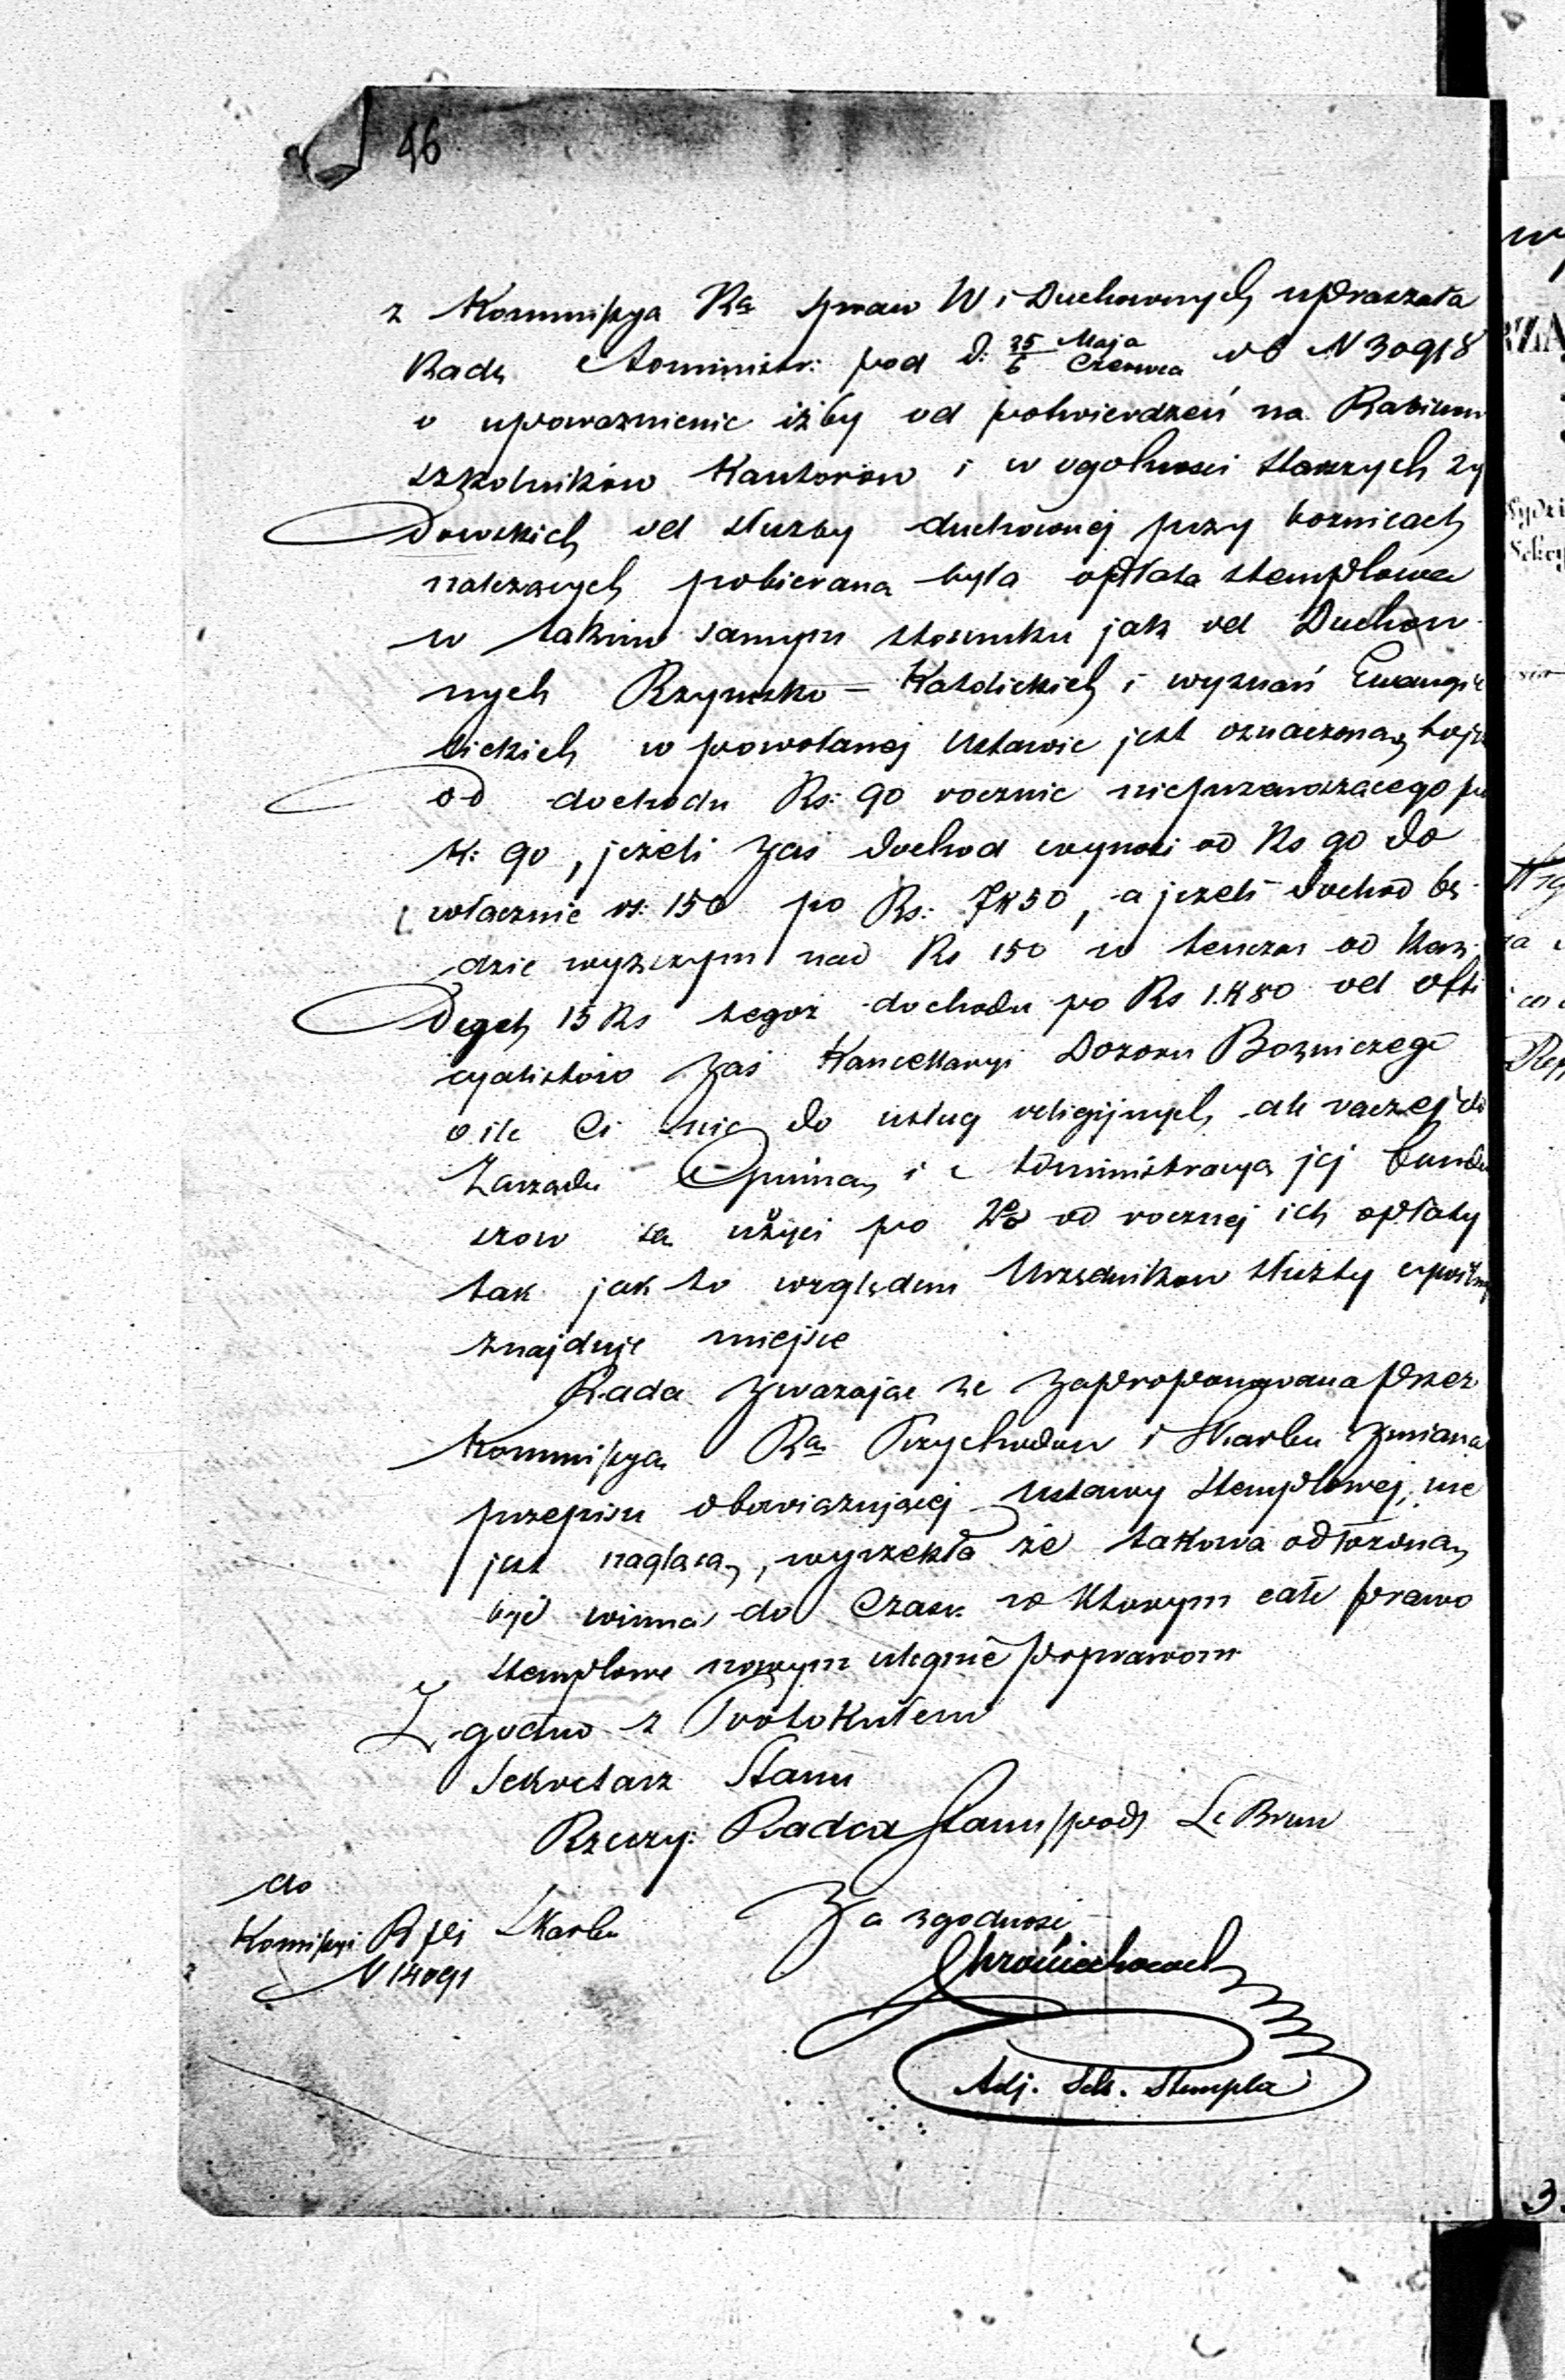 46
z Kommissya Rą Spraw W i Duchownych upraszała
Radę Administr: pod d: 25/6 Maja/Czerwca rb N 30918
o upoważnienie iżby od potwierdzeń na Rabinow
szkolników Kantorów i w ogolności starszych ży
dowskich od służby duchownej przy boznicach
należących pobierana była opłata stemplowa
w takim samym stosunku jak od Duchow
nych Rzymsko=Katolickich i wyznań Ewangie
lickich w powołanej Ustawie jest oznaczona,
od dochodu Rs: 90 rocznie nieprzenoszącego po
K: 90, jeżeli zaś dochod wynosi od Rs 90 do
włącznie rs: 150 po Rs: 7K50, a jeżeli dochod bę
dzie wyższym nad Rs 150 w tenczas od każ
dych 15 Rs tegoż dochodu po Rs 1.K80 od offi
cyalistów zaś Kancellaryi Dozoru Bozniczego
o ile Ci nie do usług religijnych ale raczej do
Zarządu Gminą i Administracyą jej fundu
szow są użyci po 2% od rocznej ich opłaty
tak jak to względem Urzędnikow służby cywilnej
znajduje miejsce
Rada zwazając ze zaproponowana przez
Kommissya Rą Przychodow i Skarbu zmiana
przepisu obowiązującej Ustawy Stemplowej, nie
jest naglącą, wyrzekła że takowa odłożoną
być winna do Czasu w ktorym całe prawo
stemplowe nowym ulegnie poprawom
Zgodno z Protokułem
Sekretarz Stanu
Rzeczy: Radca Stanu /podp Le Brun
do
Komissyi R Pei Skarbu
N 14091
Za zgodność
Adj. Sek. Stempla